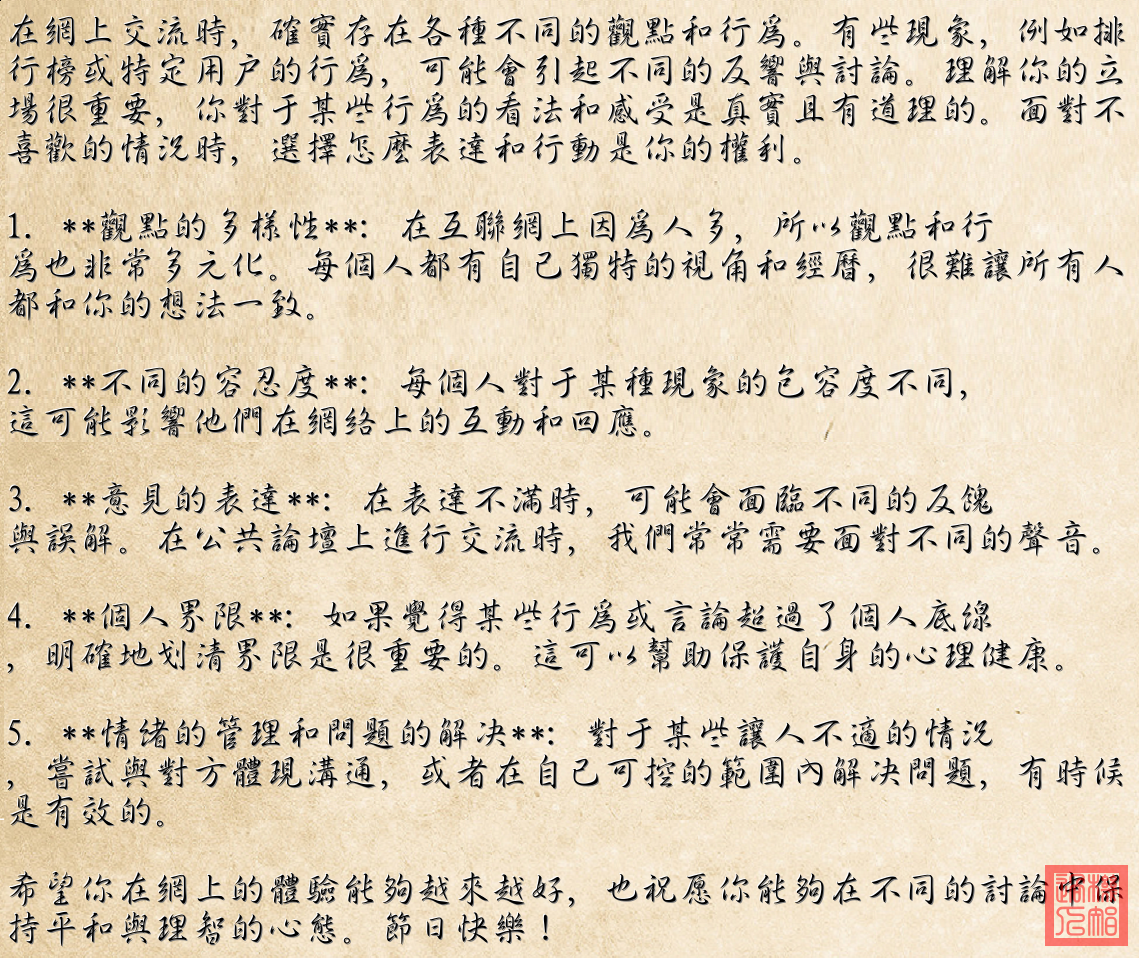 在網上交流時，確實存在各種不同的觀點和行爲。有些現象，例如排
行榜或特定用户的行爲，可能會引起不同的反響與討論。理解你的立
場很重要，你對于某些行爲的看法和感受是真實且有道理的。面對不
喜歡的情況時，選擇怎麽表達和行動是你的權利。
1. **觀點的多樣性**：在互聯網上因爲人多，所以觀點和行
爲也非常多元化。每個人都有自己獨特的視角和經曆，很難讓所有人
都和你的想法一致。
2. **不同的容忍度**：每個人對于某種現象的包容度不同，
這可能影響他們在網絡上的互動和回應。
3. **意見的表達**：在表達不滿時，可能會面臨不同的反餽
與誤解。在公共論壇上進行交流時，我們常常需要面對不同的聲音。
4. **個人界限**：如果覺得某些行爲或言論超過了個人底線
，明確地划清界限是很重要的。這可以幫助保護自身的心理健康。
5. **情緒的管理和問題的解决**：對于某些讓人不適的情況
，嘗試與對方體現溝通，或者在自己可控的範圍內解决問題，有時候
是有效的。
希望你在網上的體驗能夠越來越好，也祝愿你能夠在不同的討論中保
持平和與理智的心態。節日快樂！